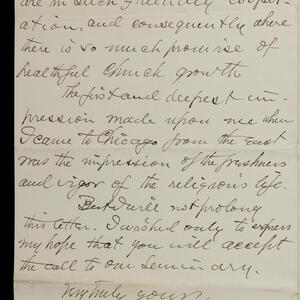 are in such friendly cooper-
ation, and consequently where
there is so much promise of
healthful church growth.
The first and deepest im-
pression made upon me when
I came to Chicago from the East
was the impression of the freshness
and vigor of the religious life.
But I will not prolong
this letter. I wished only to express
my hope that you will accept
the call to our Seminary.
Very truly yours